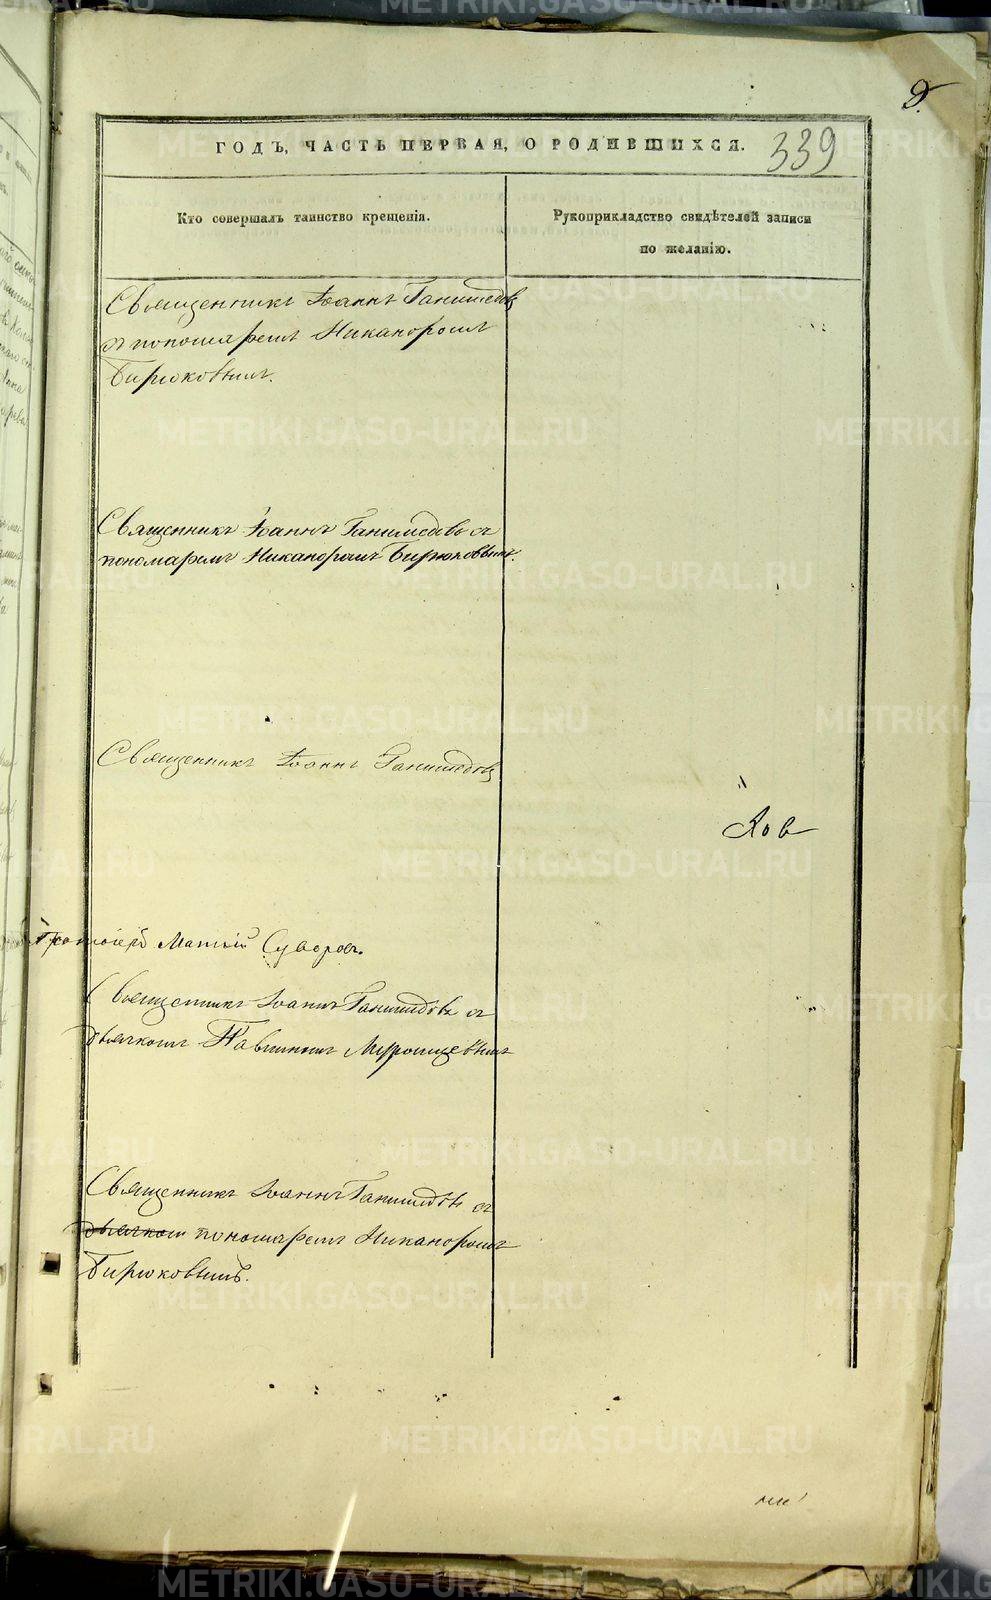 ГОДЪ, ЧАСТЬ ПЕРВАЯ, О РОДИВШИХСЯ.
339
Кто совершалъ таинство крещенія.
Рукоприкладство свидѣтелей записи
по желанію.
Священникъ Іоаннъ Ганимедовъ
съ пономаремъ Никаноромъ
Бирюковымъ.
Священникъ Іоаннъ Ганимедовъ съ
пономаремъ Никаноромъ Бирюковымъ.
Священникъ Іоаннъ Ганимедовъ
ков
Протоіерей Матѳій Суворовъ.
Священникъ Іоаннъ Ганимедовъ съ
дьячкомъ Павлиномъ
Священникъ Іоаннъ Ганимедовъ съ
дьячком пономаремъ Никаноромъ
Бирюковымъ.
METRIKI.GASO-URAL.RU